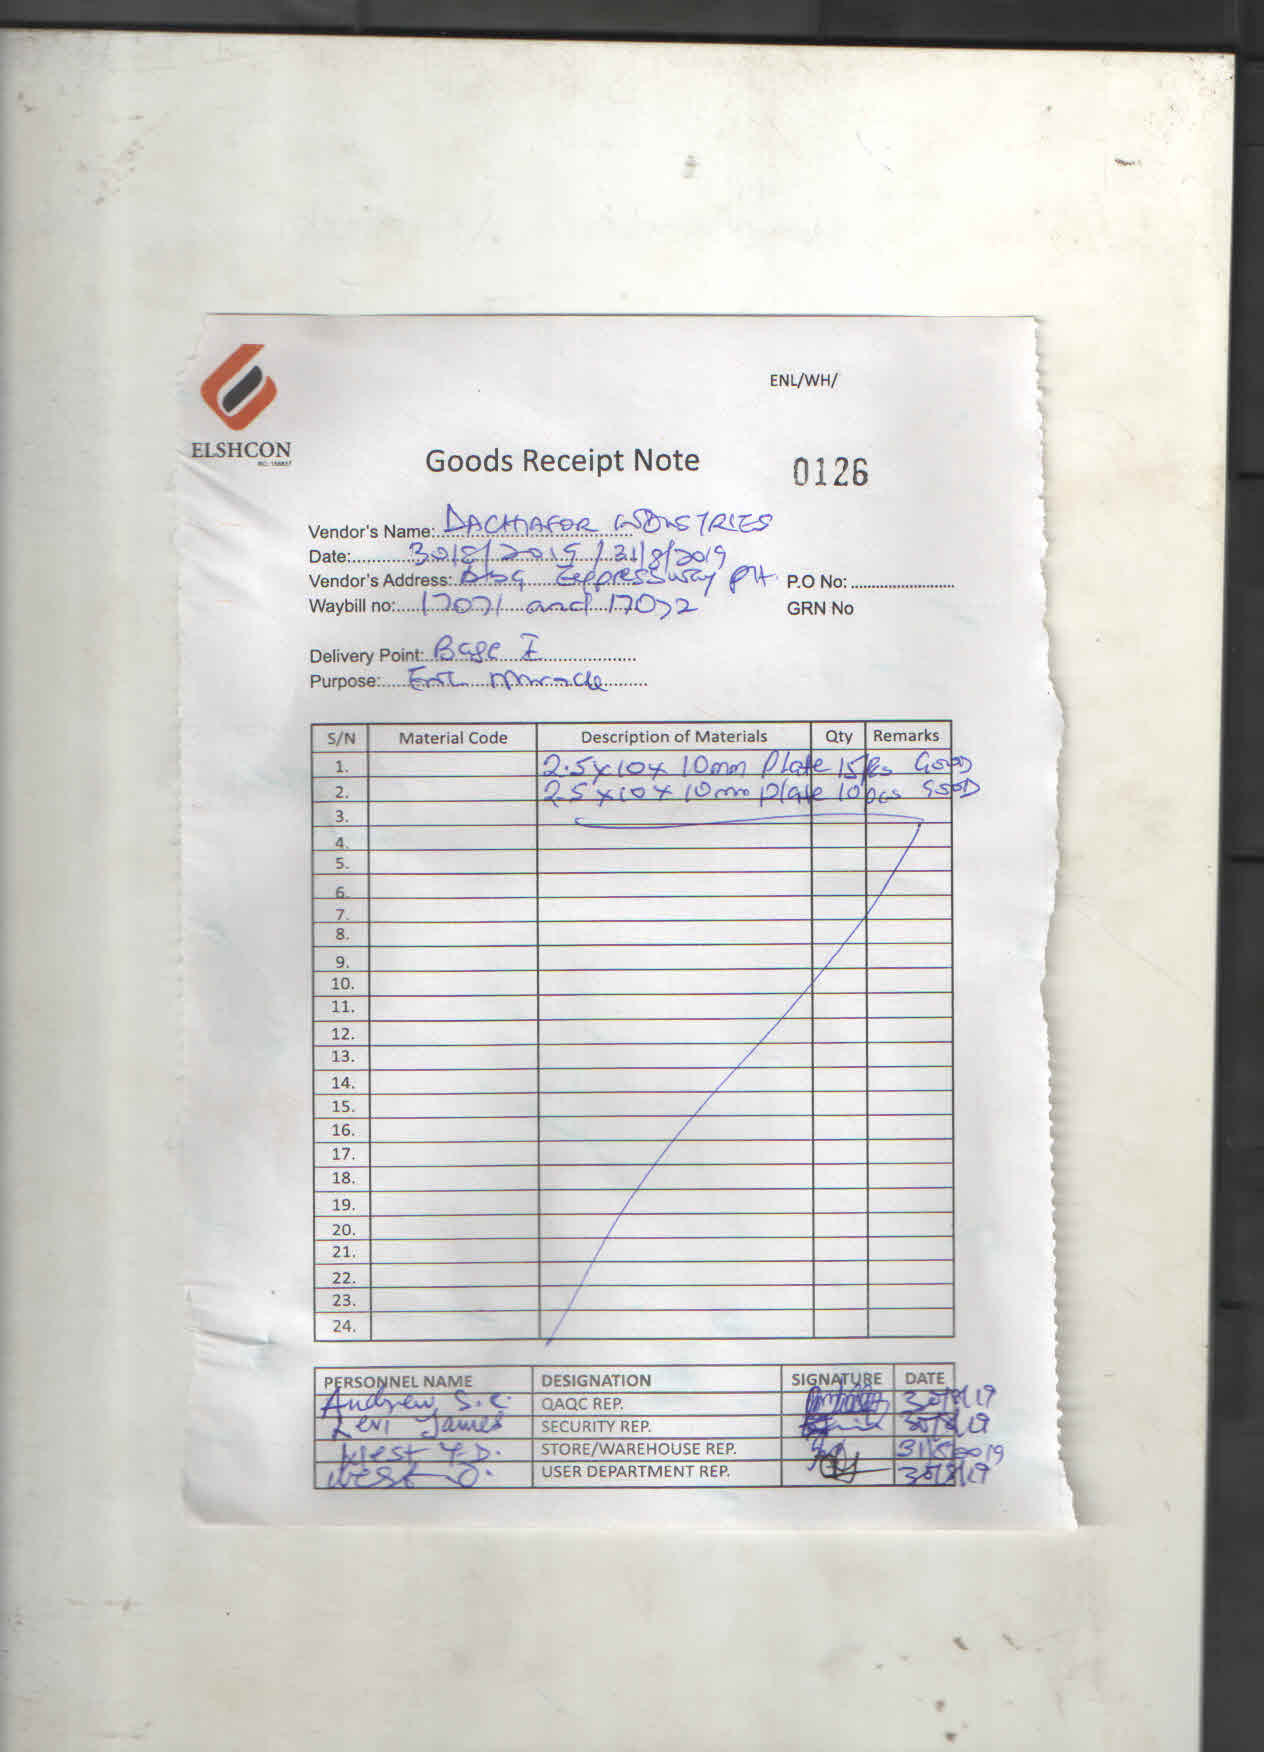 ELSHCON
ENL/WH/
Goods Receipt Note
0126
Vendor's Name: DACHIAFOR INDUSTRIES
Date: 30/8/2019 / 31/8/2019
Vendor's Address: Expressway PH.
P.O No:
Waybill no: 17071 and 17072
GRN No
Delivery Point: Base I
Purpose: ENL Miracle
S/N Material Code Description of Materials Qty Remarks
1. 2.5x10x10mm Plate 15pcs GOOD
2. 2.5x10x10mm plate 10pcs GOOD
3.
4.
5.
6.
7.
8.
9.
10.
11.
12.
13.
14.
15.
16.
17.
18.
19.
20.
21.
22.
23.
24.
PERSONNEL NAME DESIGNATION SIGNATURE DATE
Andrew S.C. QAQC REP. 30/8/19
Levi James SECURITY REP. 30/8/19
West T.D. STORE/WAREHOUSE REP. 31/8/2019
West O. USER DEPARTMENT REP. 30/8/19